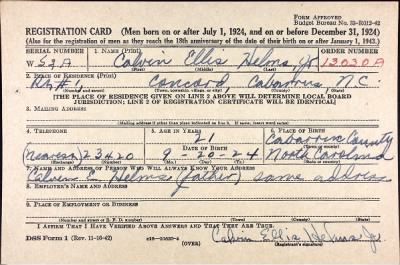 FORM APPROVED
Budget Bureau No. 33-R012-42
REGISTRATION CARD (Men born on or after July 1, 1924, and on or before December 31, 1924)
(Also for the registration of men as they reach the 18th anniversary of the date of their birth on or after January 1, 1943.)
SERIAL NUMBER 1. NAME (Print) ORDER NUMBER
W 53A Calvin Ellis Helms Jr 13030A
(First) (Middle) (Last)
2. PLACE OF RESIDENCE (Print)
Concord Cabarrus N.C.
(Number and street) (Town, township, village, or city) (County) (State)
[THE PLACE OF RESIDENCE GIVEN ON LINE 2 ABOVE WILL DETERMINE LOCAL BOARD
JURISDICTION; LINE 2 OF REGISTRATION CERTIFICATE WILL BE IDENTICAL]
3. MAILING ADDRESS
(Mailing address if other than place indicated on line 2. If same, insert word same)
4. TELEPHONE 5. AGE IN YEARS 6. PLACE OF BIRTH
21 Cabarrus County
DATE OF BIRTH (Town or county)
(nearest) 23420 9-20-24 North Carolina
(Exchange) (Number) (Mo.) (Day) (Yr.) (State or country)
7. NAME AND ADDRESS OF PERSON WHO WILL ALWAYS KNOW YOUR ADDRESS
Calvin E. Helms (father) same address
8. EMPLOYER'S NAME AND ADDRESS
9. PLACE OF EMPLOYMENT OR BUSINESS
(Number and street or R. F. D. number) (Town) (County) (State)
I AFFIRM THAT I HAVE VERIFIED ABOVE ANSWERS AND THAT THEY ARE TRUE.
DSS Form 1 (Rev. 11-16-42) (OVER) Calvin Ellis Helms Jr.
(Registrant's signature)